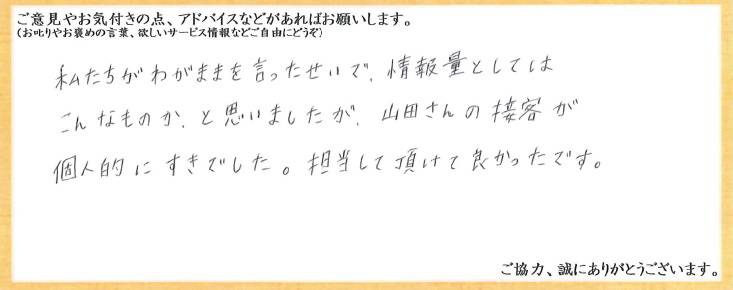 ご意見やお気付きの点、アドバイスなどがあればお願いします。
(お叱りやお褒めの言葉、欲しいサービス情報などご自由にどうぞ)
私たちがわがままを言ったせいで、情報量としては
こんなものか、と思いましたが、山田さんの接客が
個人的にすきでした。担当して頂けて良かったです。
ご協力、誠にありがとうございます。